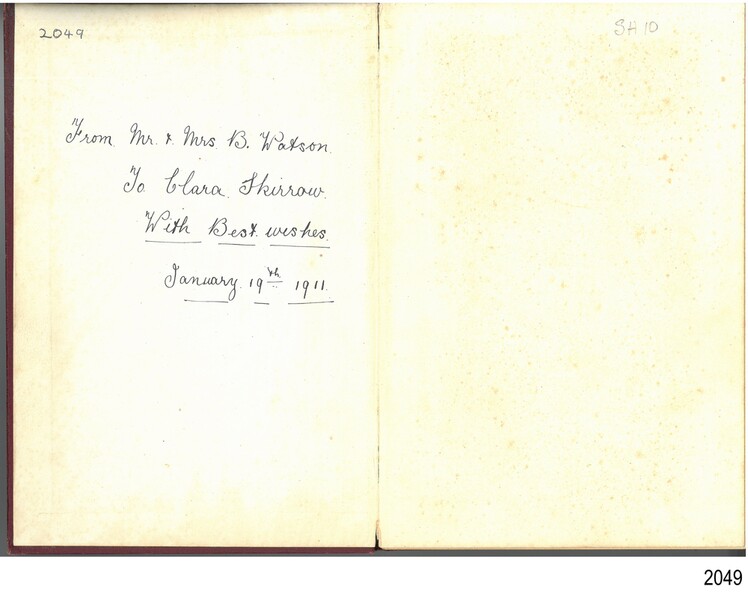 2049
SH 10
From Mr. & Mrs B. Watson.
To Clara Skirrow.
With Best wishes.
January 19th 1911.
2049